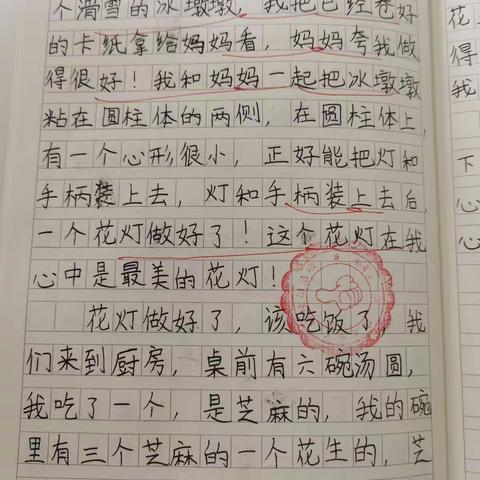 个滑雪的冰墩墩,我把已经卷好
的卡纸拿给妈妈看,妈妈夸我做
得很好!我和妈妈一起把冰墩墩
粘在圆柱体的两侧,在圆柱体上,
有一个心形很小,正好能把灯和
手柄装上去,灯和手柄装上去后,
一个花灯做好了!这个花灯在我
心中是最美的花灯!
花灯做好了,该吃饭了,我
们来到厨房,桌前有六碗汤圆,
我吃了一个,是芝麻的,我的碗
里有三个芝麻的一个花生的,芝
花
得
我
下
心
心